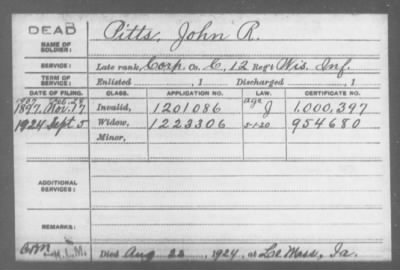 DEAD
NAME OF SOLDIER: Pitts, John R.
SERVICE: Late rank, Corp. Co. C, 12 Reg't Wis. Inf.
TERM OF SERVICE: Enlisted , 1 Discharged , 1
DATE OF FILING. CLASS. APPLICATION NO. LAW. CERTIFICATE NO.
1897 Nov. 17 Invalid, 1201086 age J 1,000,397
1924 Sept 5 Widow, 1223306 5-1-20 954680
Minor,
ADDITIONAL SERVICES:
REMARKS:
Died Aug 1924, at Le Mars, Ia.